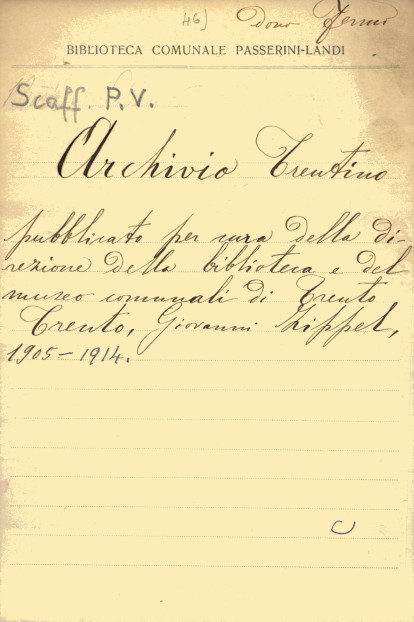 46) Dono Fermi
BIBLIOTECA COMUNALE PASSERINI-LANDI
Scaff. P.V.
Archivio Trentino
pubblicato per cura della di-
rezione della biblioteca e del
museo comunali di Trento
Trento, Giovanni Zippel,
1905-1914.